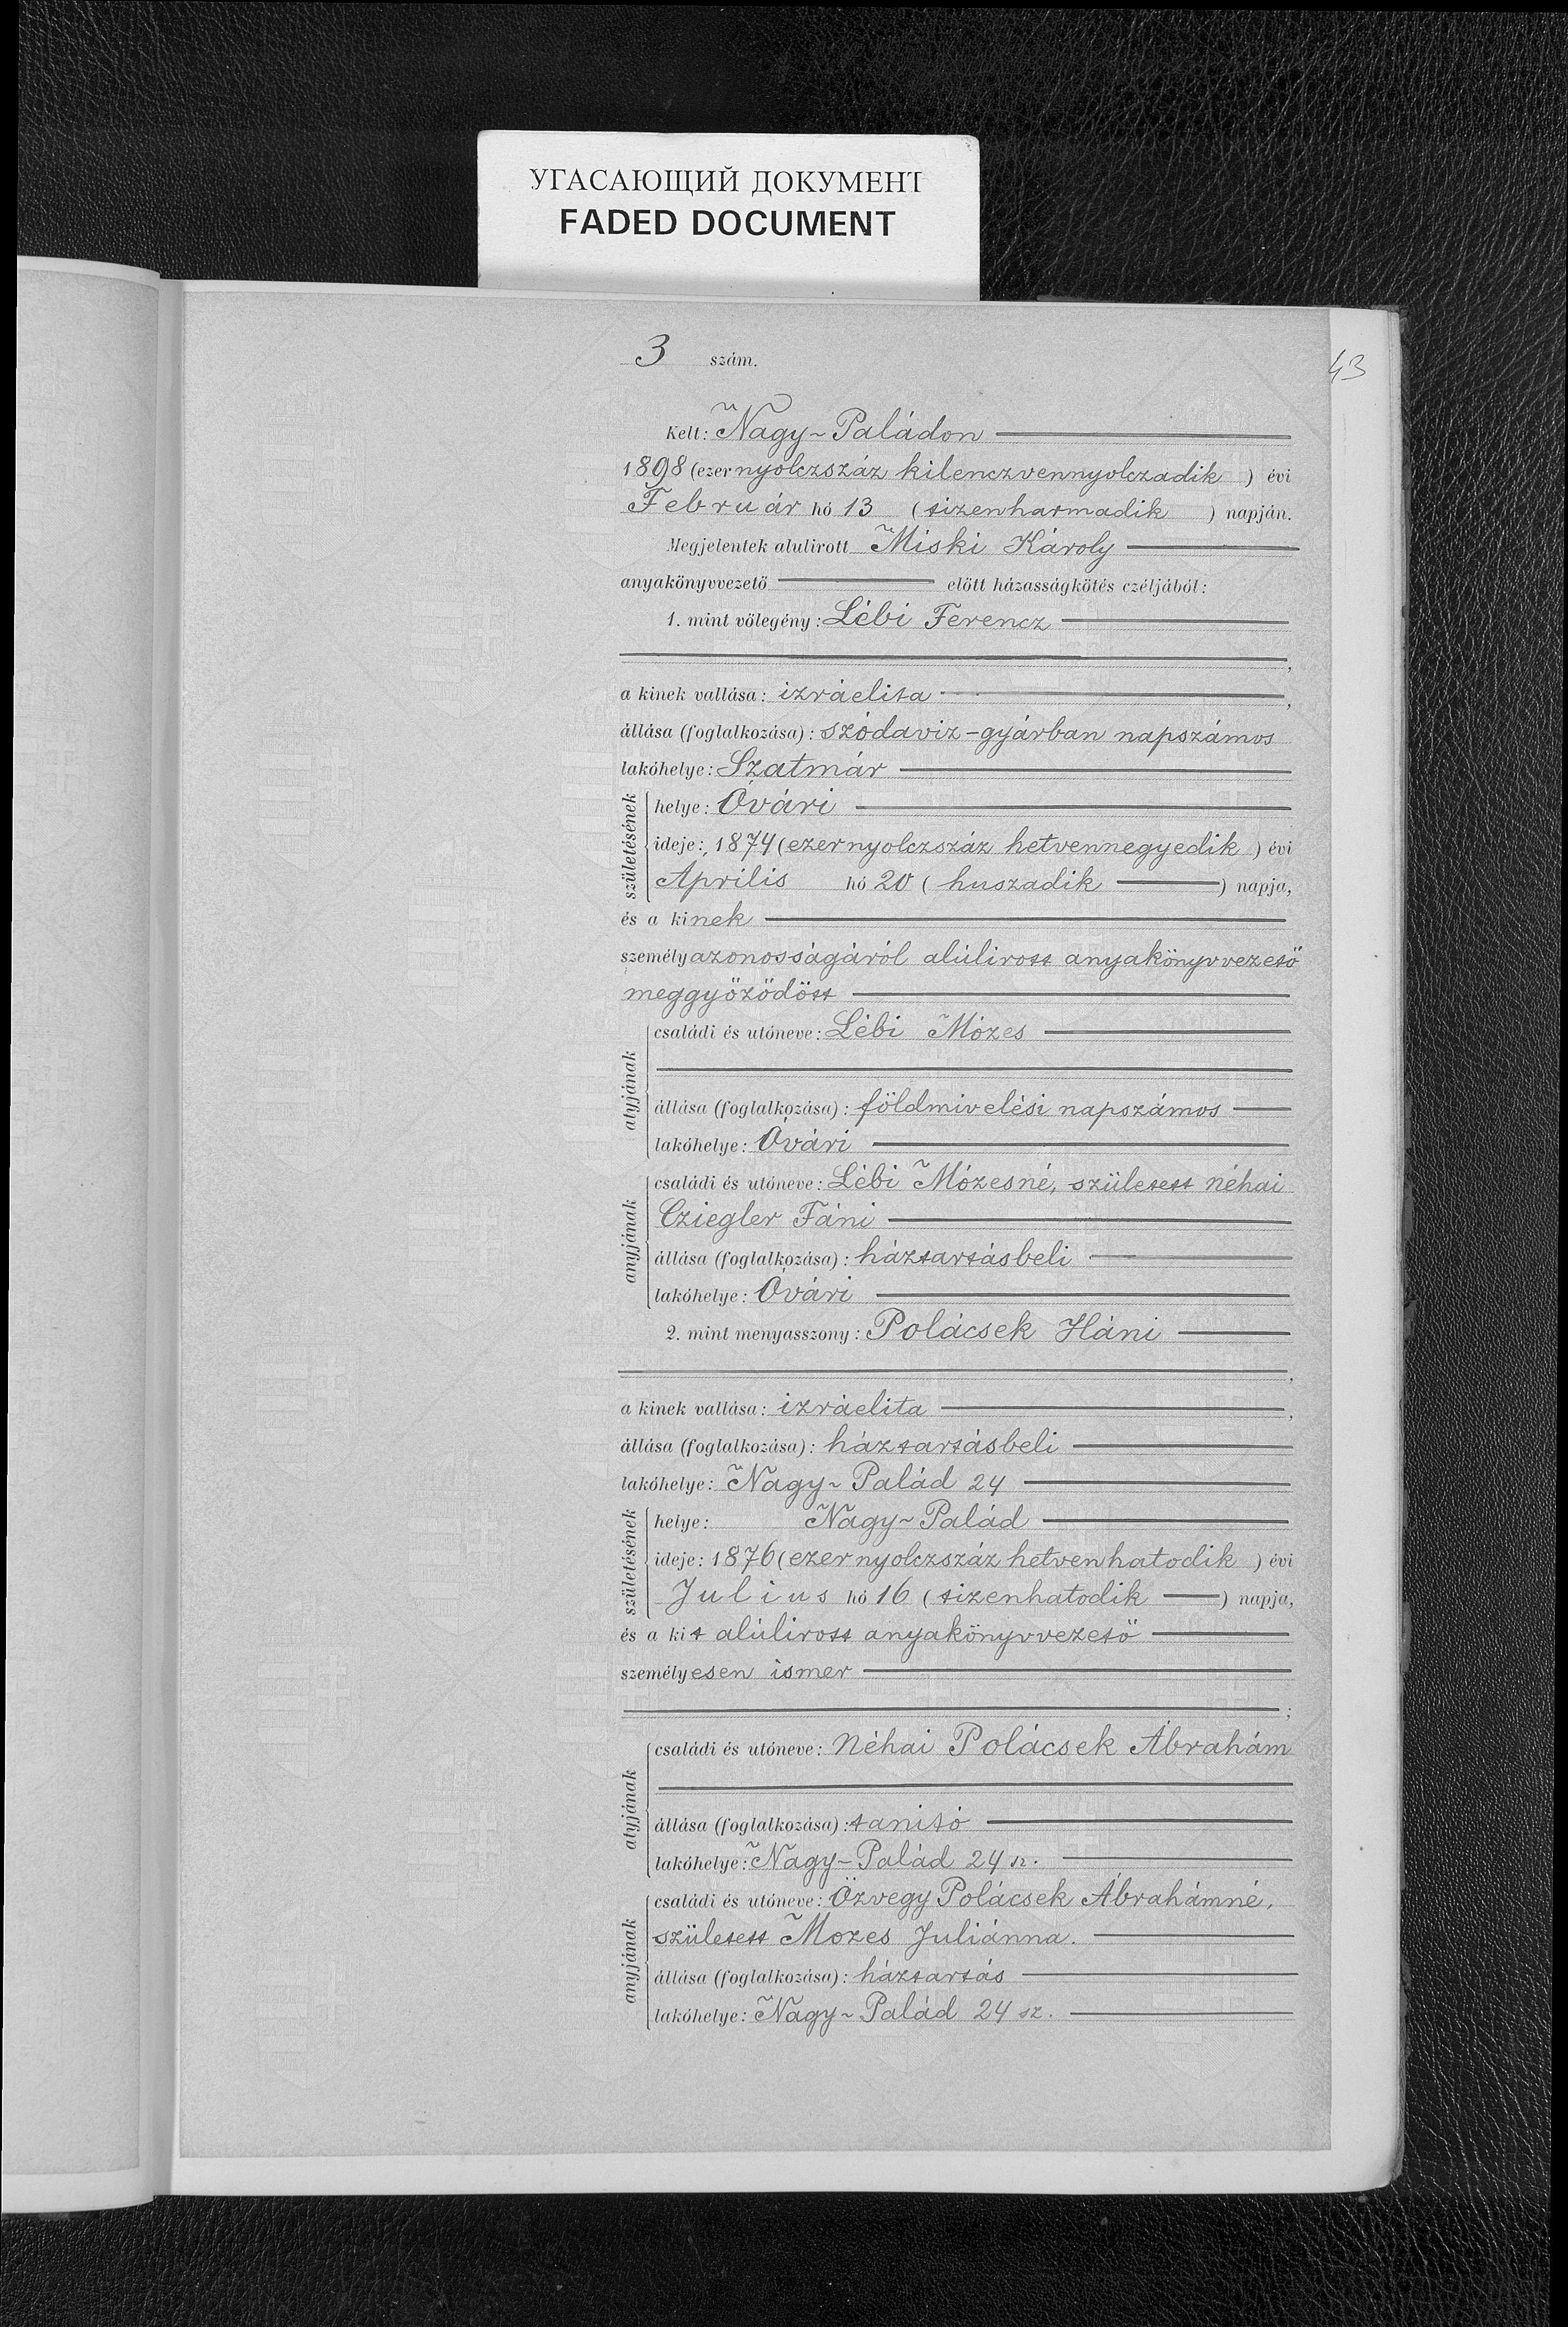 УГАСАЮЩИЙ ДОКУМЕНТ
FADED DOCUMENT
43
3 szám.
Kelt: Nagy-Paládon
1898 (ezernyolczszáz kilenczvennyolczadik ) évi
Február hó 13 (tizenharmadik ) napján.
Megjelentek alulirott Miski Károly
anyakönyvvezető előtt házasságkötés czéljából:
1. mint vőlegény: Lébi Ferencz
,
a kinek vallása: izráelita ,
állása (foglalkozása): szódaviz-gyárban napszámos
lakóhelye: Szatmár
születésének
helye: Óvári
ideje: 1874 (ezernyolczszáz hetvennegyedik ) évi
Április hó 20 ( huszadik ) napja,
és a kinek
személyazonosságáról alúlirott anyakönyvvezető
meggyőződött
atyjának
családi és utóneve: Lébi Mózes
állása (foglalkozása): földmivelési napszámos
lakóhelye: Óvári
anyjának
családi és utóneve: Lébi Mózesné, született néhai
Cziegler Fáni
állása (foglalkozása): háztartásbeli
lakóhelye: Óvári
2. mint menyasszony: Polácsek Háni
,
a kinek vallása: izráelita ,
állása (foglalkozása): háztartásbeli
lakóhelye: Nagy-Palád 24
születésének
helye: Nagy-Palád
ideje: 1876 (ezernyolczszáz hetvenhatodik ) évi
Julius hó 16 (tizenhatodik ) napja,
és a kit alúlirott anyakönyvvezető
személyesen ismer
;
atyjának
családi és utóneve: Néhai Polácsek Ábrahám
állása (foglalkozása): tanitó
lakóhelye: Nagy-Palád 24 sz.
anyjának
családi és utóneve: Özvegy Polácsek Ábrahámné,
született Mozes Juliánna.
állása (foglalkozása): háztartás
lakóhelye: Nagy-Palád 24 sz.